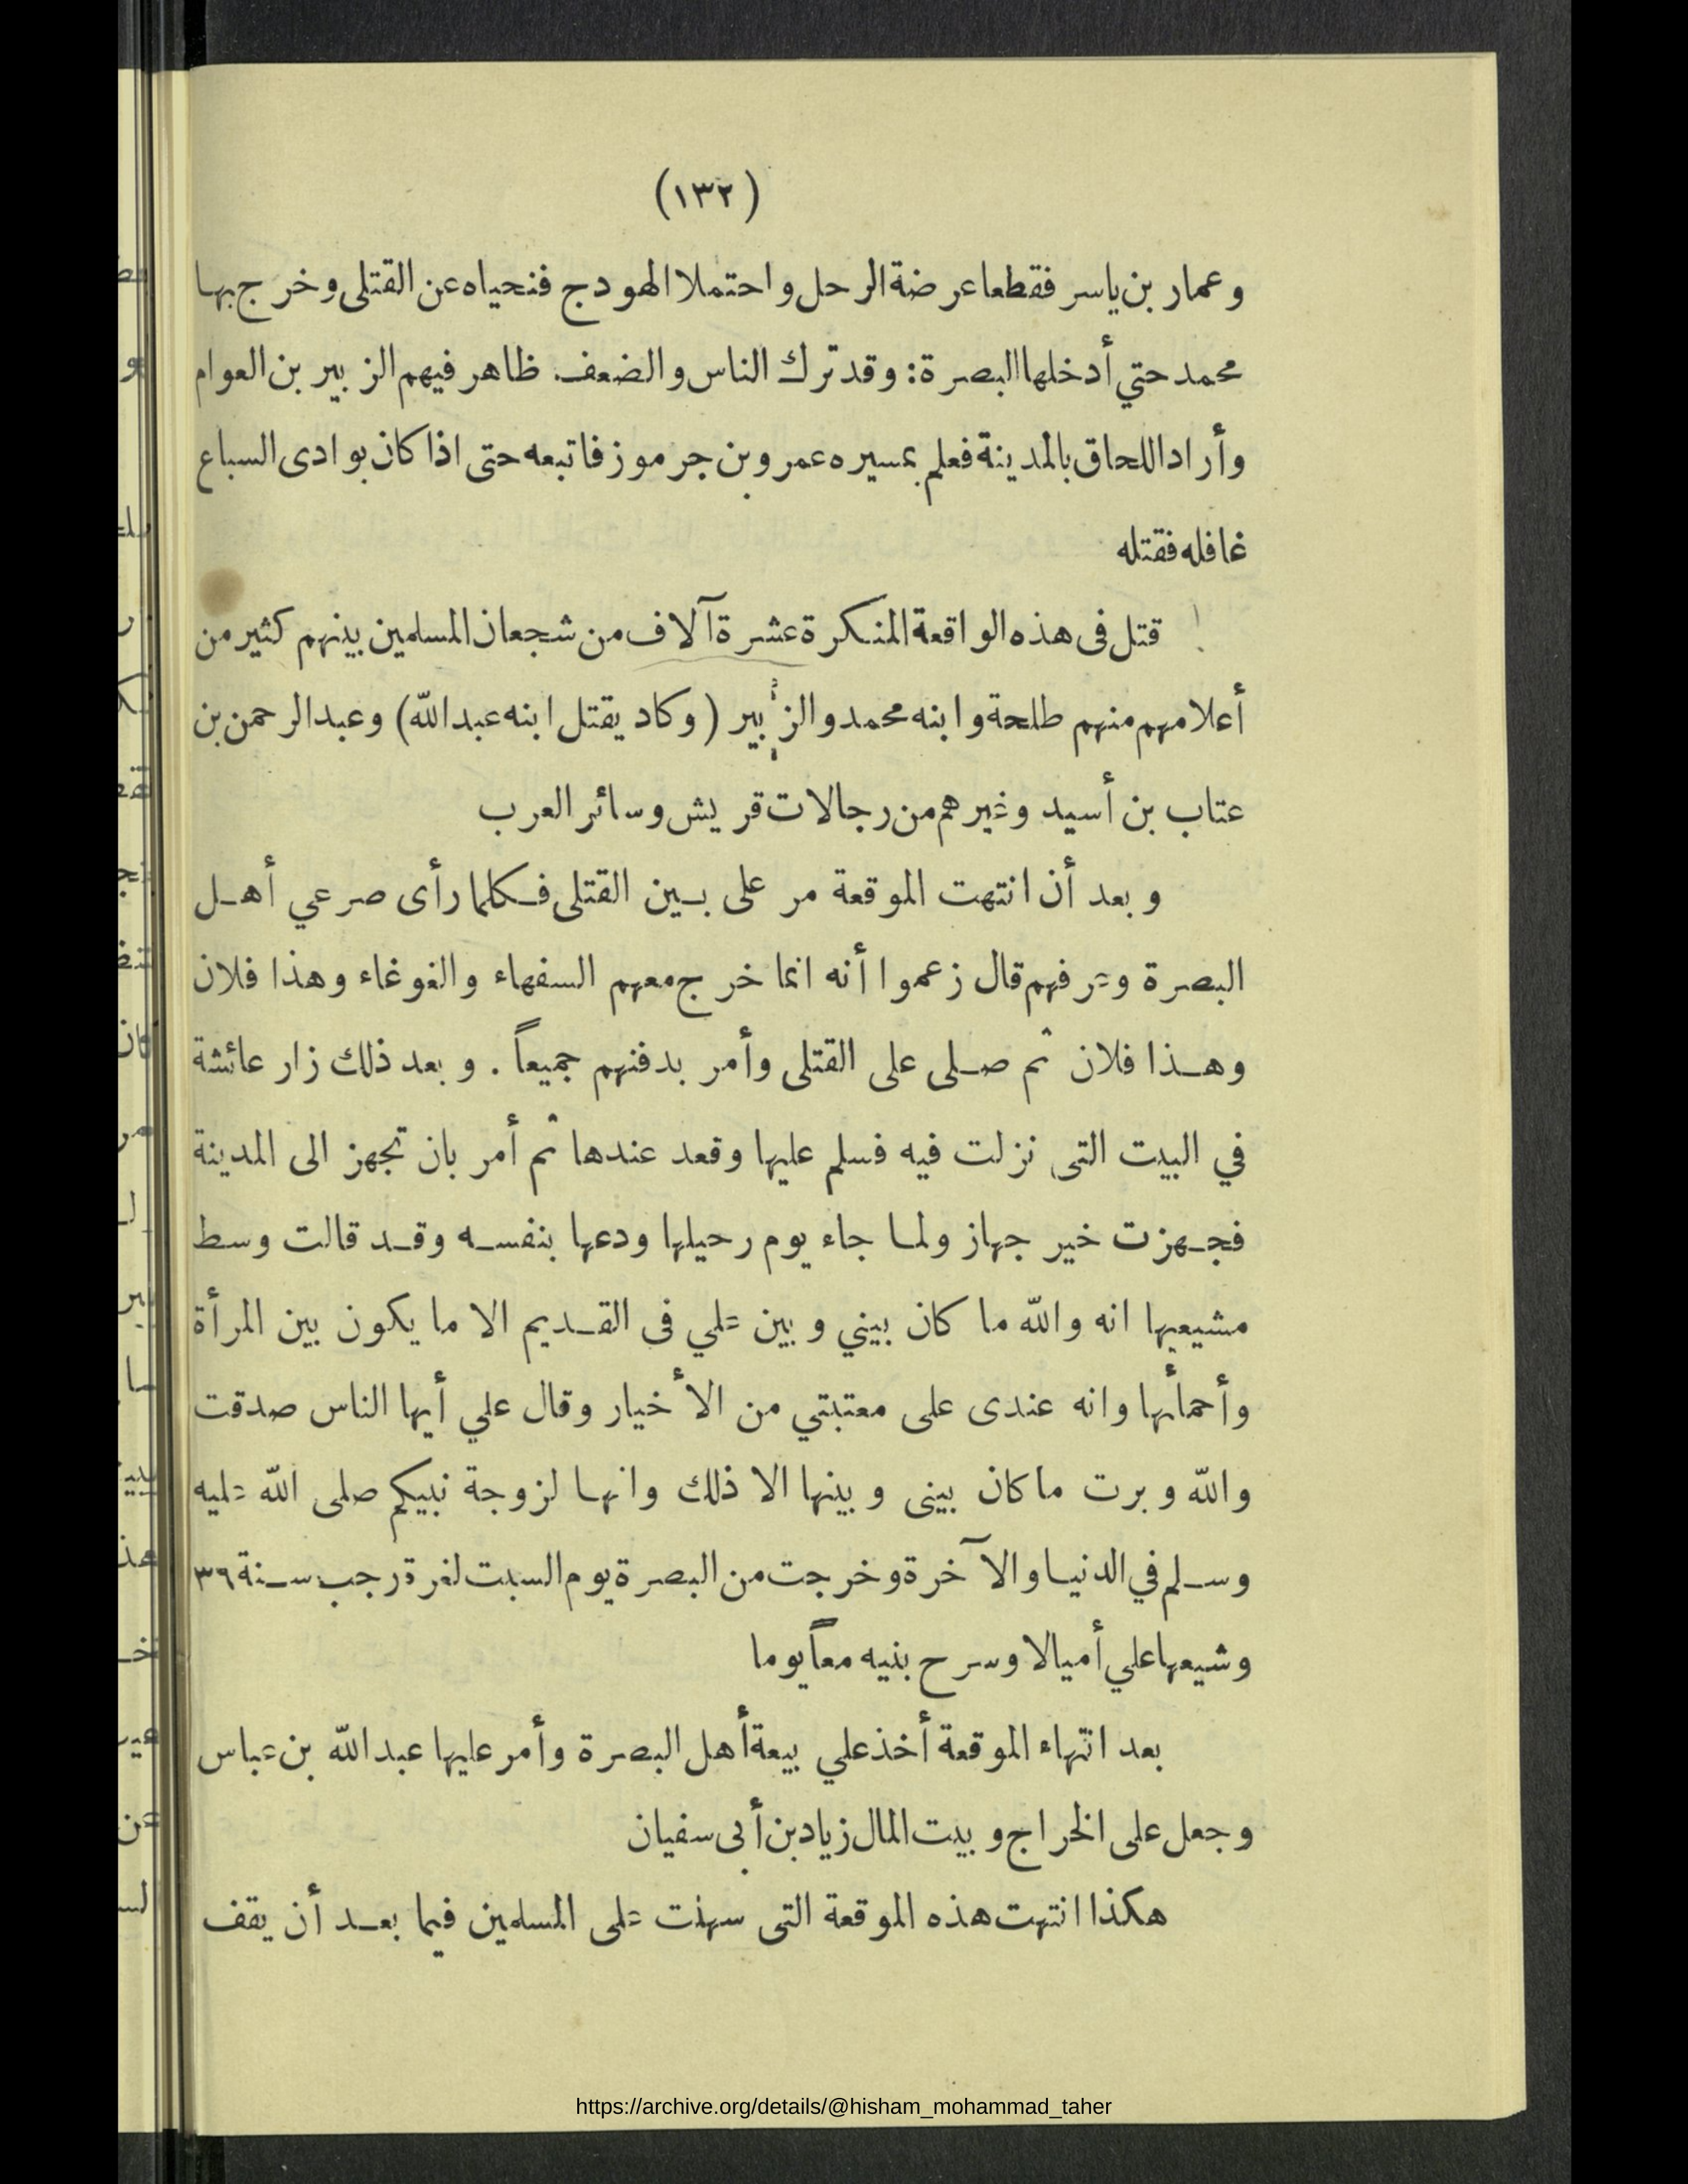 (١٣٢)
وعمار بن ياسر فقطعا عرضة الرحل واحتملا الهودج فنحياه عن القتلى وخرج بها
محمد حتي أدخلها البصرة: وقد ترك الناس والضعف ظاهر فيهم الزبير بن العوام
وأراد اللحاق بالمدينة فعلم بمسيره عمرو بن جرموز فاتبعه حتى اذا كان بوادى السباع
غافله فقتله
قتل فى هذه الواقعة المنكرة عشرة آلاف من شجعان المسلمين بينهم كثير من
أعلامهم منهم طلحة وابنه محمد والزبير (وكاد يقتل ابنه عبد الله) وعبد الرحمن بن
عتاب بن أسيد وغيرهم من رجالات قريش وسائر العرب
وبعد أن انتهت الموقعة مر على بين القتلى فكلما رأى صرعي أهل
البصرة وعرفهم قال زعموا أنه انما خرج معهم السفهاء والغوغاء وهذا فلان
وهذا فلان ثم صلى على القتلى وأمر بدفنهم جميعاً . وبعد ذلك زار عائشة
في البيت التى نزلت فيه فسلم عليها وقعد عندها ثم أمر بان تجهز الى المدينة
فجهزت خير جهاز ولما جاء يوم رحيلها ودعها بنفسه وقد قالت وسط
مشيعيها انه والله ما كان بيني وبين علي فى القديم الا ما يكون بين المرأة
وأحمائها وانه عندى على معتبتي من الأخيار وقال علي أيها الناس صدقت
والله وبرت ما كان بينى وبينها الا ذلك وانها لزوجة نبيكم صلى الله عليه
وسلم في الدنيا والآخرة وخرجت من البصرة يوم السبت لغرة رجب سنة ٣٦
وشيعها علي أميالا وسرح بنيه معاً يوما
بعد انتهاء الموقعة أخذ علي بيعة أهل البصرة وأمر عليها عبد الله بن عباس
وجعل على الخراج وبيت المال زياد بن أبى سفيان
هكذا انتهت هذه الموقعة التى سهلت على المسلمين فيما بعد أن يقف
https://archive.org/details/@hisham_mohammad_taher